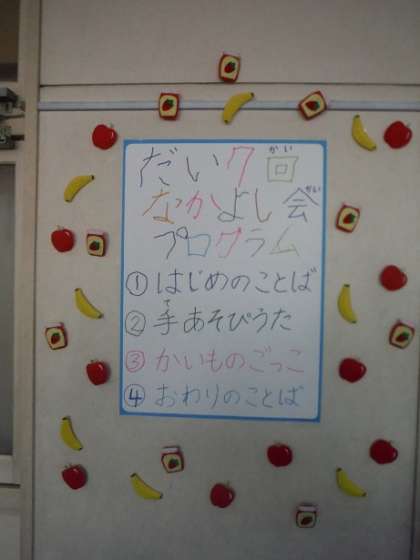 だい7回
なかよし会
プログラム
①はじめのことば
②手あそびうた
③かいものごっこ
④おわりのことば